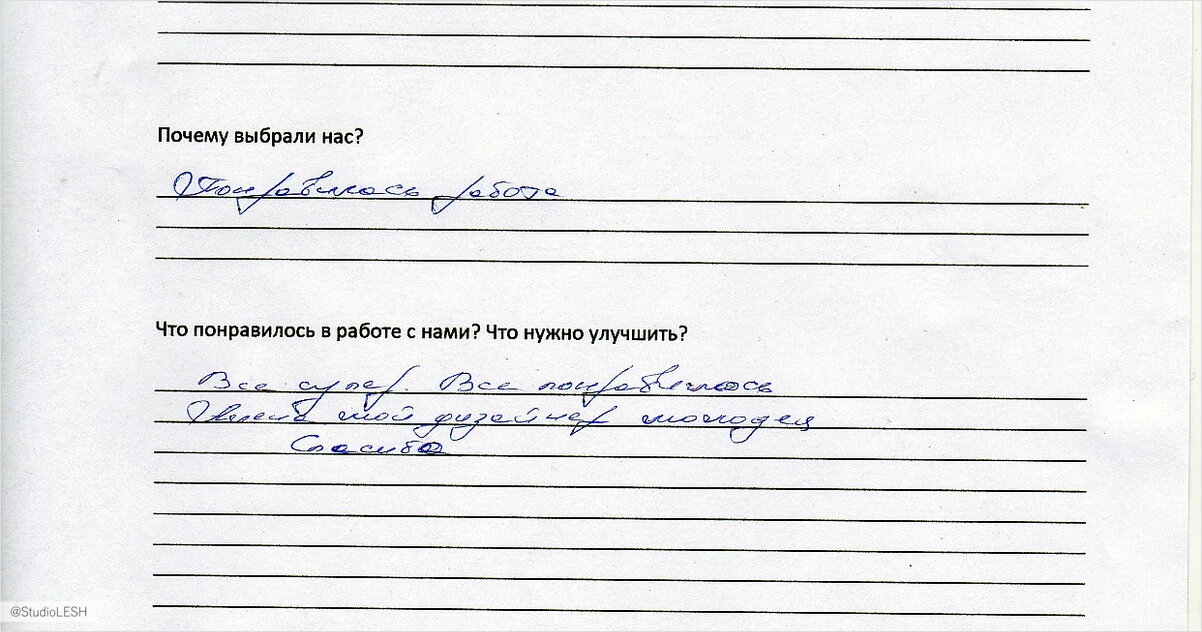 Почему выбрали нас?
Понравилась работа
Что понравилось в работе с нами? Что нужно улучшить?
Все супер. Все понравилось
мой дизайнер молодец
Спасибо
@StudioLESH